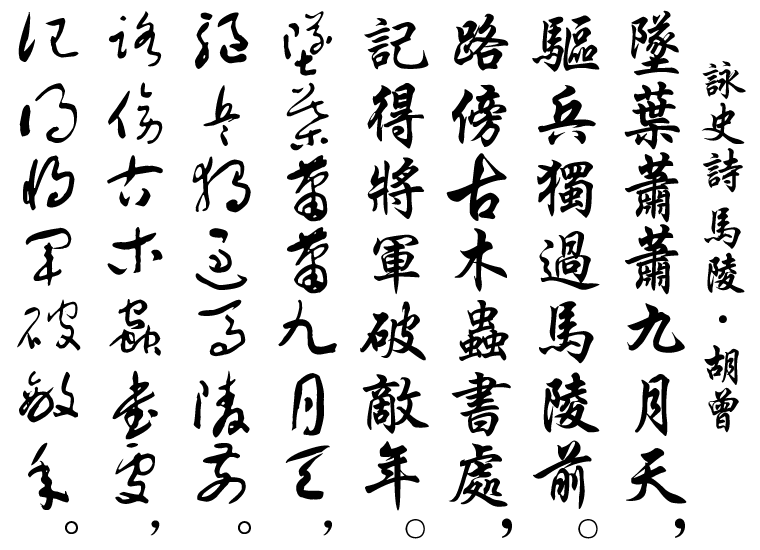 詠史詩 馬陵・胡曾
墜葉蕭蕭九月天，
驅兵獨過馬陵前。
路傍古木蟲書處，
記得將軍破敵年。
墜葉蕭蕭九月天，
驅兵獨過馬陵前。
路傍古木蟲書處，
記得將軍破敵年。